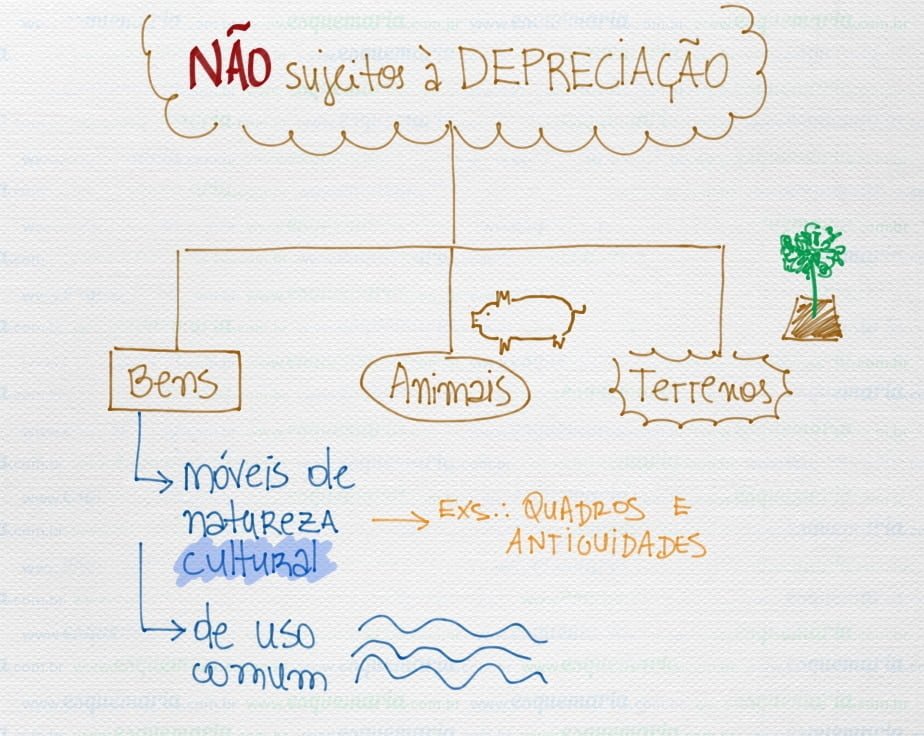 NÃO sujeitos à DEPRECIAÇÃO
Bens
Animais
Terrenos
móveis de
natureza
cultural
Exs.: QUADROS E
ANTIGUIDADES
de uso
comum